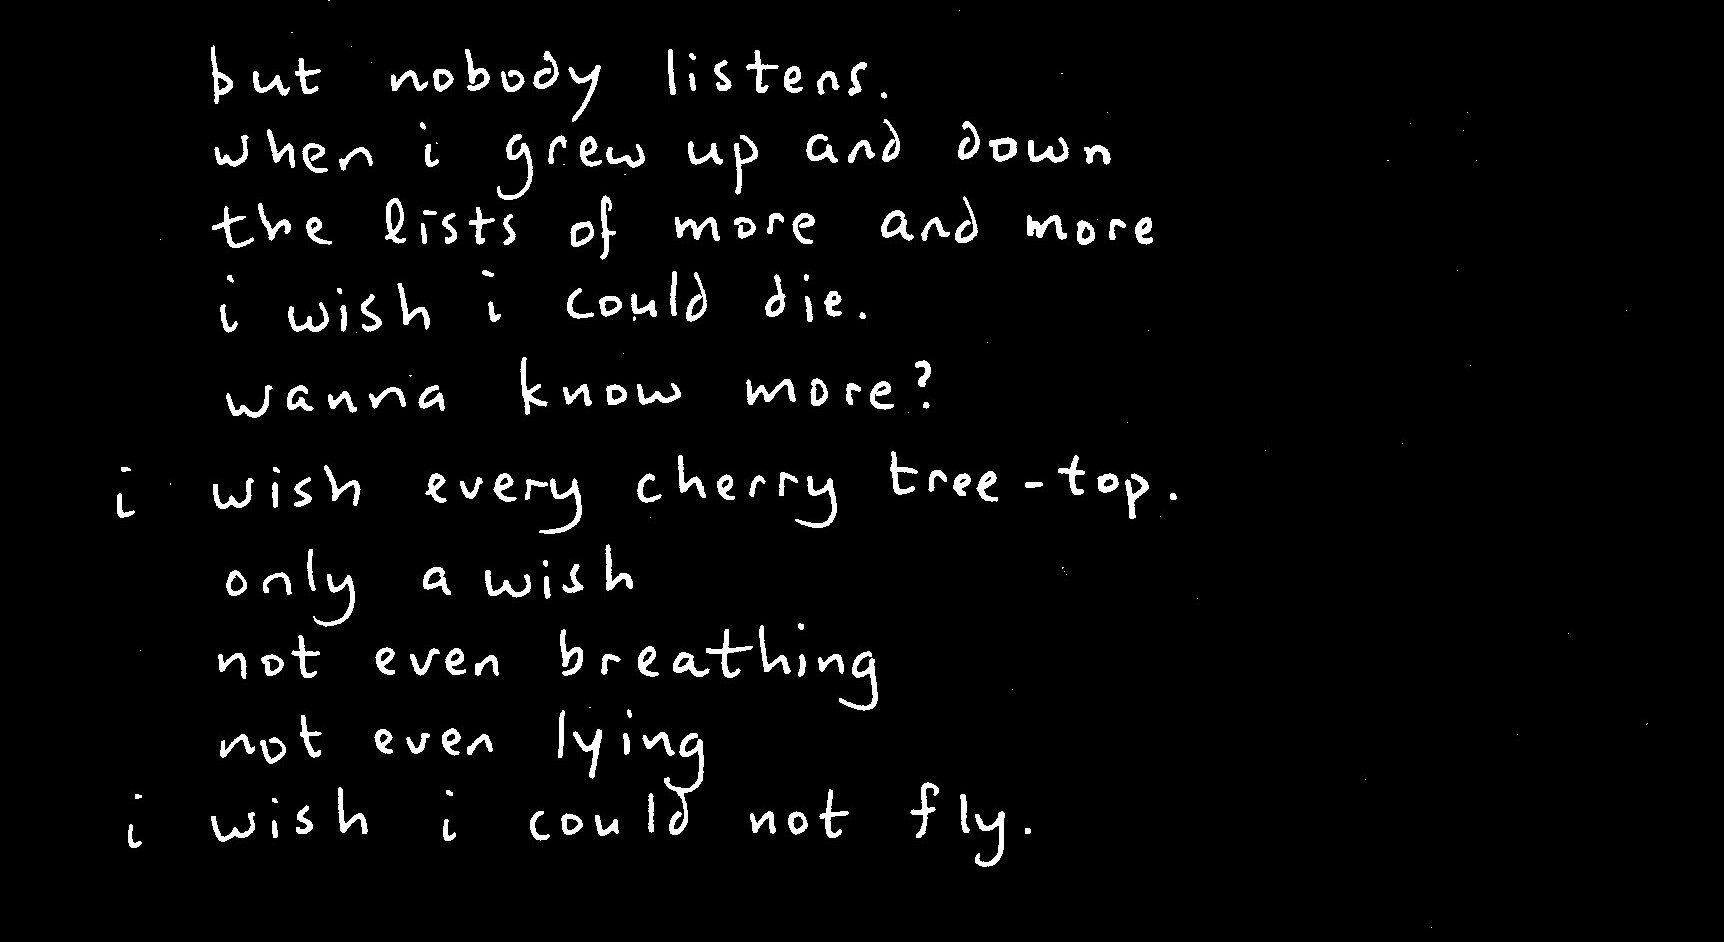 but nobody listens.
when i grew up and down
the lists of more and more
i wish i could die.
wanna know more?
i wish every cherry tree-top.
only a wish
not even breathing
not even lying
i wish i could not fly.